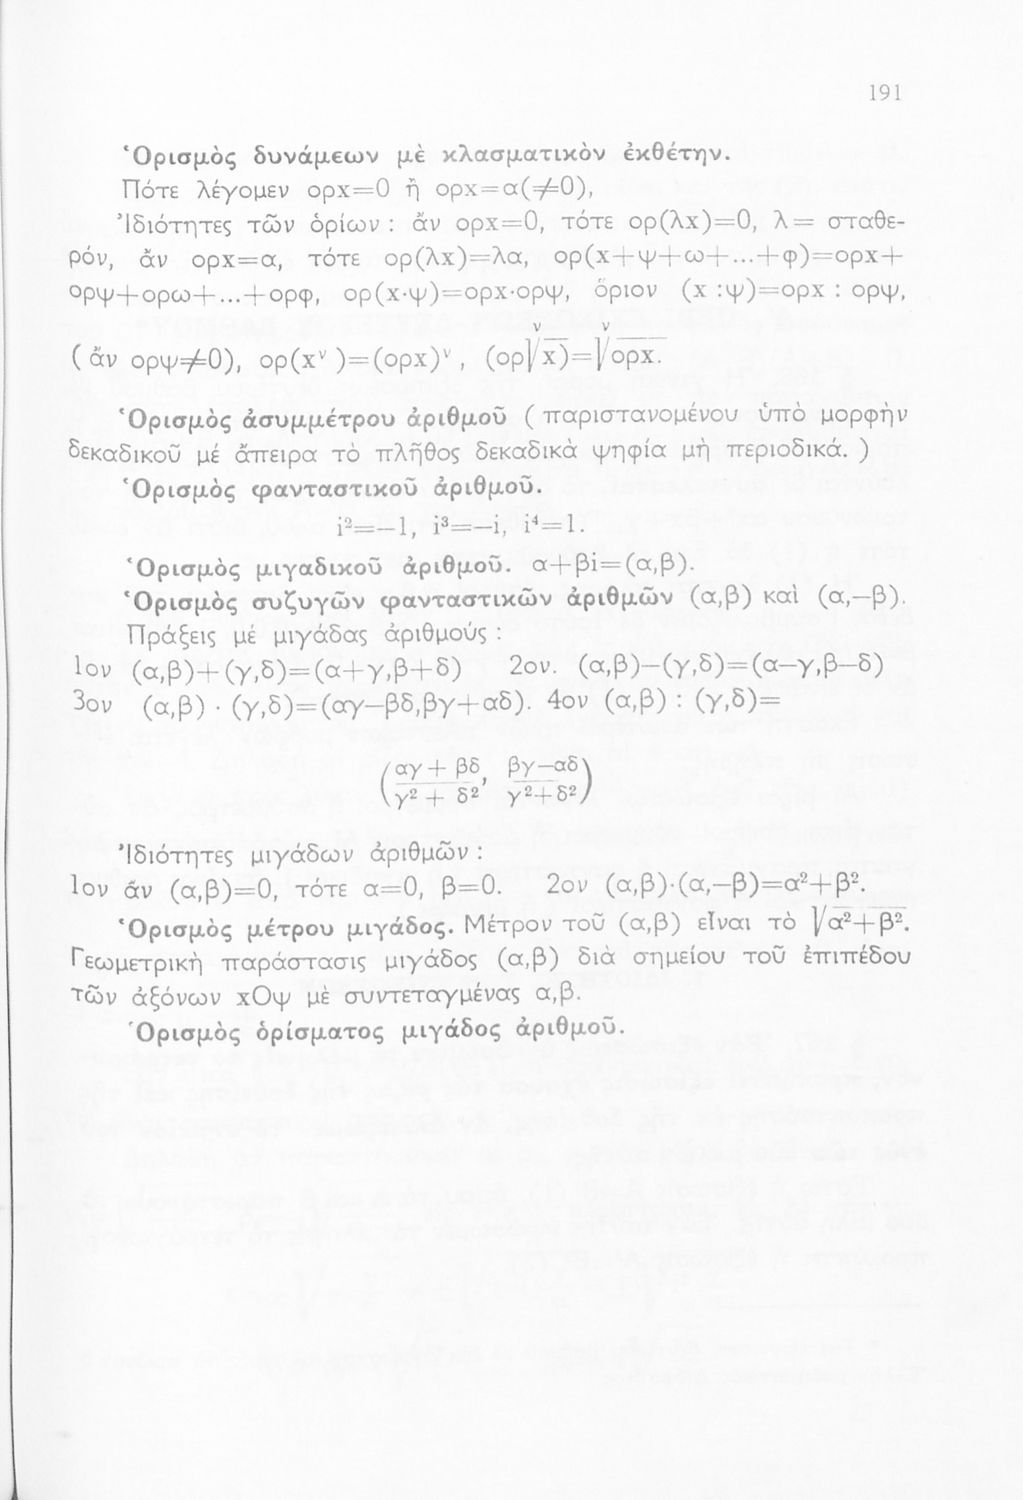 191
Ὁρισμὸς δυνάμεων μὲ κλασματικὸν ἐκθέτην.
Πότε λέγομεν ορx=0 ἢ ορx=α(≠0),
Ἰδιότητες τῶν ὁρίων : ἄν ορx=0, τότε ορ(λx)=0, λ= σταθε-
ρόν, ἄν ορx=α, τότε ορ(λx)=λα, ορ(x+ψ+ω+...+φ)=ορx+
ορψ+ορω+...+ορφ, ορ(x·ψ)=ορx·ορψ, ὅριον (x :ψ)=ορx : ορψ,
(ἄν ορψ≠0), ορ(xᵛ)=(ορx)ᵛ, (ορ ᵛ√x)= ᵛ√ορx.
Ὁρισμὸς ἀσυμμέτρου ἀριθμοῦ (παριστανομένου ὑπὸ μορφὴν
δεκαδικοῦ μέ ἄπειρα τὸ πλῆθος δεκαδικὰ ψηφία μὴ περιοδικά.)
Ὁρισμὸς φανταστικοῦ ἀριθμοῦ.
i²=—1, i³=—i, i⁴=1.
Ὁρισμὸς μιγαδικοῦ ἀριθμοῦ. α+βi=(α,β).
Ὁρισμὸς συζυγῶν φανταστικῶν ἀριθμῶν (α,β) καὶ (α,—β).
Πράξεις μέ μιγάδας ἀριθμούς :
1ον (α,β)+(γ,δ)=(α+γ,β+δ) 2ον. (α,β)—(γ,δ)=(α—γ,β—δ)
3ον (α,β) · (γ,δ)=(αγ—βδ,βγ+αδ). 4ον (α,β) : (γ,δ)=
((αγ+βδ)/(γ²+δ²), (βγ—αδ)/(γ²+δ²))
Ἰδιότητες μιγάδων ἀριθμῶν :
1ον ἄν (α,β)=0, τότε α=0, β=0. 2ον (α,β)·(α,—β)=α²+β².
Ὁρισμὸς μέτρου μιγάδος. Μέτρον τοῦ (α,β) εἶναι τὸ √α²+β².
Γεωμετρικὴ παράστασις μιγάδος (α,β) διὰ σημείου τοῦ ἐπιπέδου
τῶν ἀξόνων xOψ μὲ συντεταγμένας α,β.
Ὁρισμὸς ὁρίσματος μιγάδος ἀριθμοῦ.